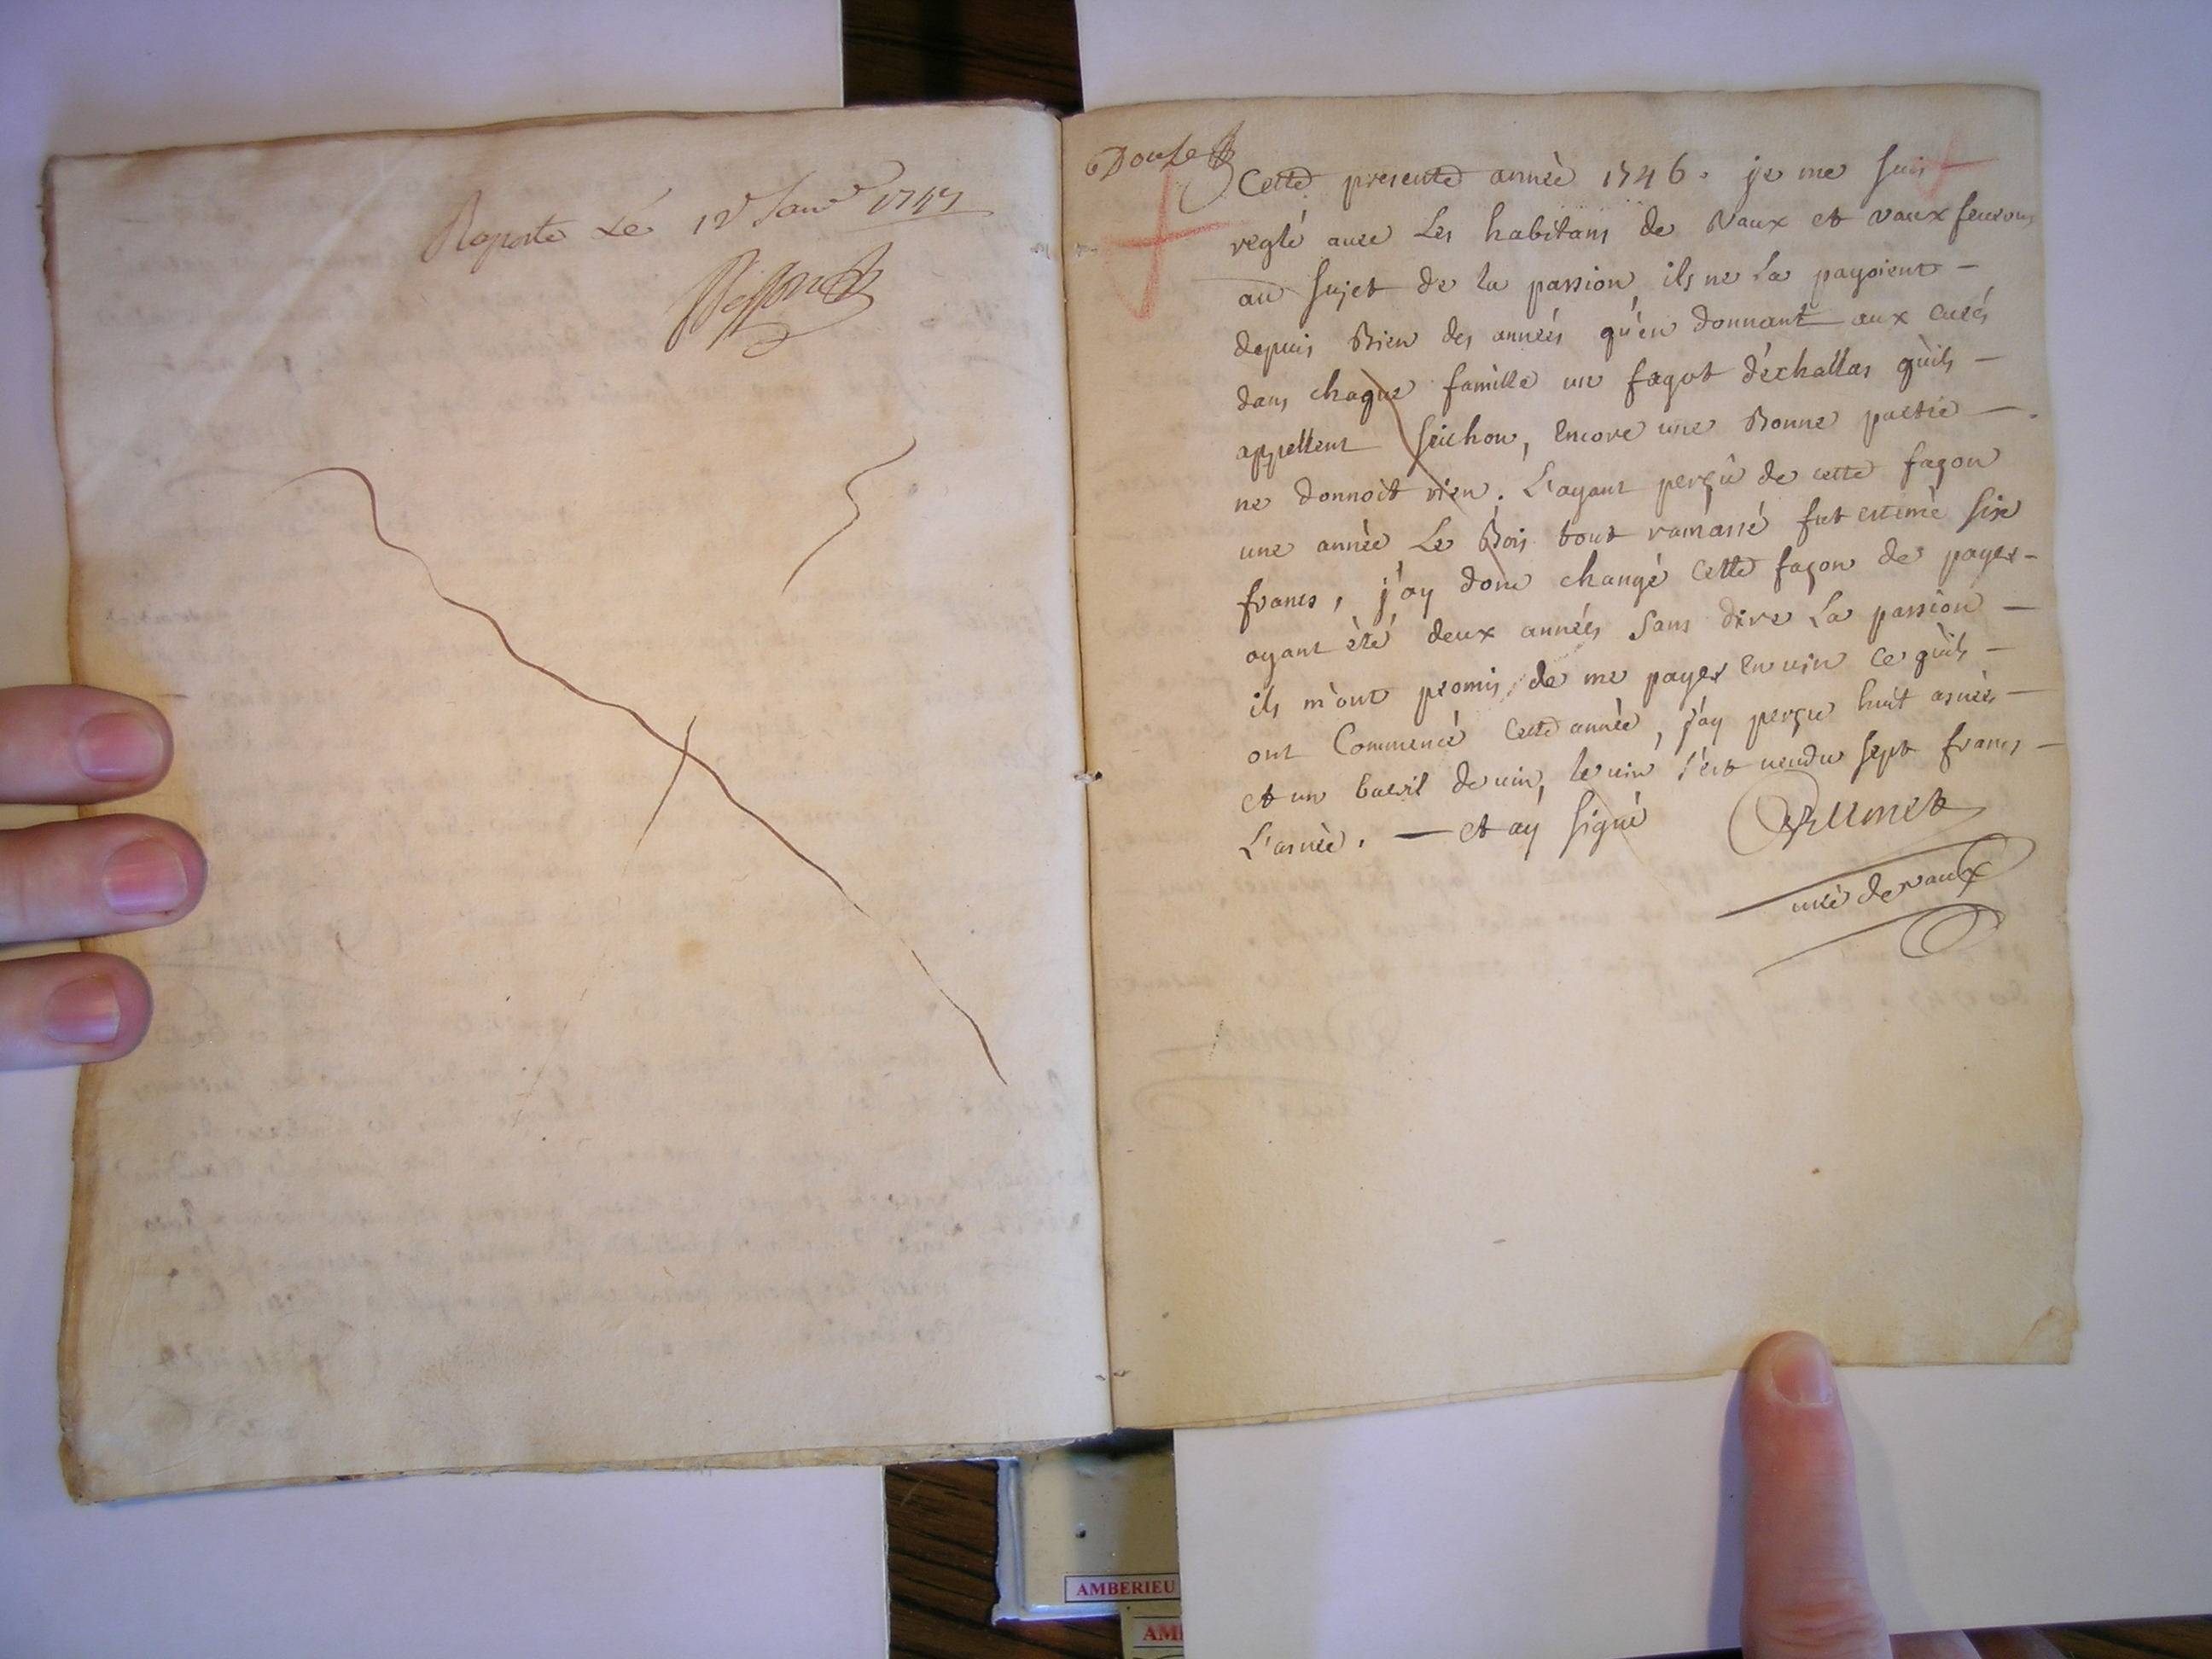 Raporté Le 12e Janv 1747
Douze
Cette presente année 1746. je me suis
reglé avec Les habitans de Vaux et vaux fevrous
au sujet de la passion, ils ne La payoient –
depuis Bien des années qu'en donnant aux curés
dans chaque famille un fagot d'échallas qu'ils –
appellent seichon, Encore une Bonne partie –
ne donnoit rien. L'ayant perçu de cette façon
une année Le Bois tout ramassé fut estimé six
francs, j'ay donc changé cette façon de payer –
ayant été deux années sans dire La passion –
ils m'ont promis de me payer en vin ce qu'ils –
ont Commencé cette année, j'ay perçu huit asnées –
et un baril de vin, le vin s'est vendu sept francs –
L'asnée. – et ay signé
curé de vaux
AMBERIEU
AM